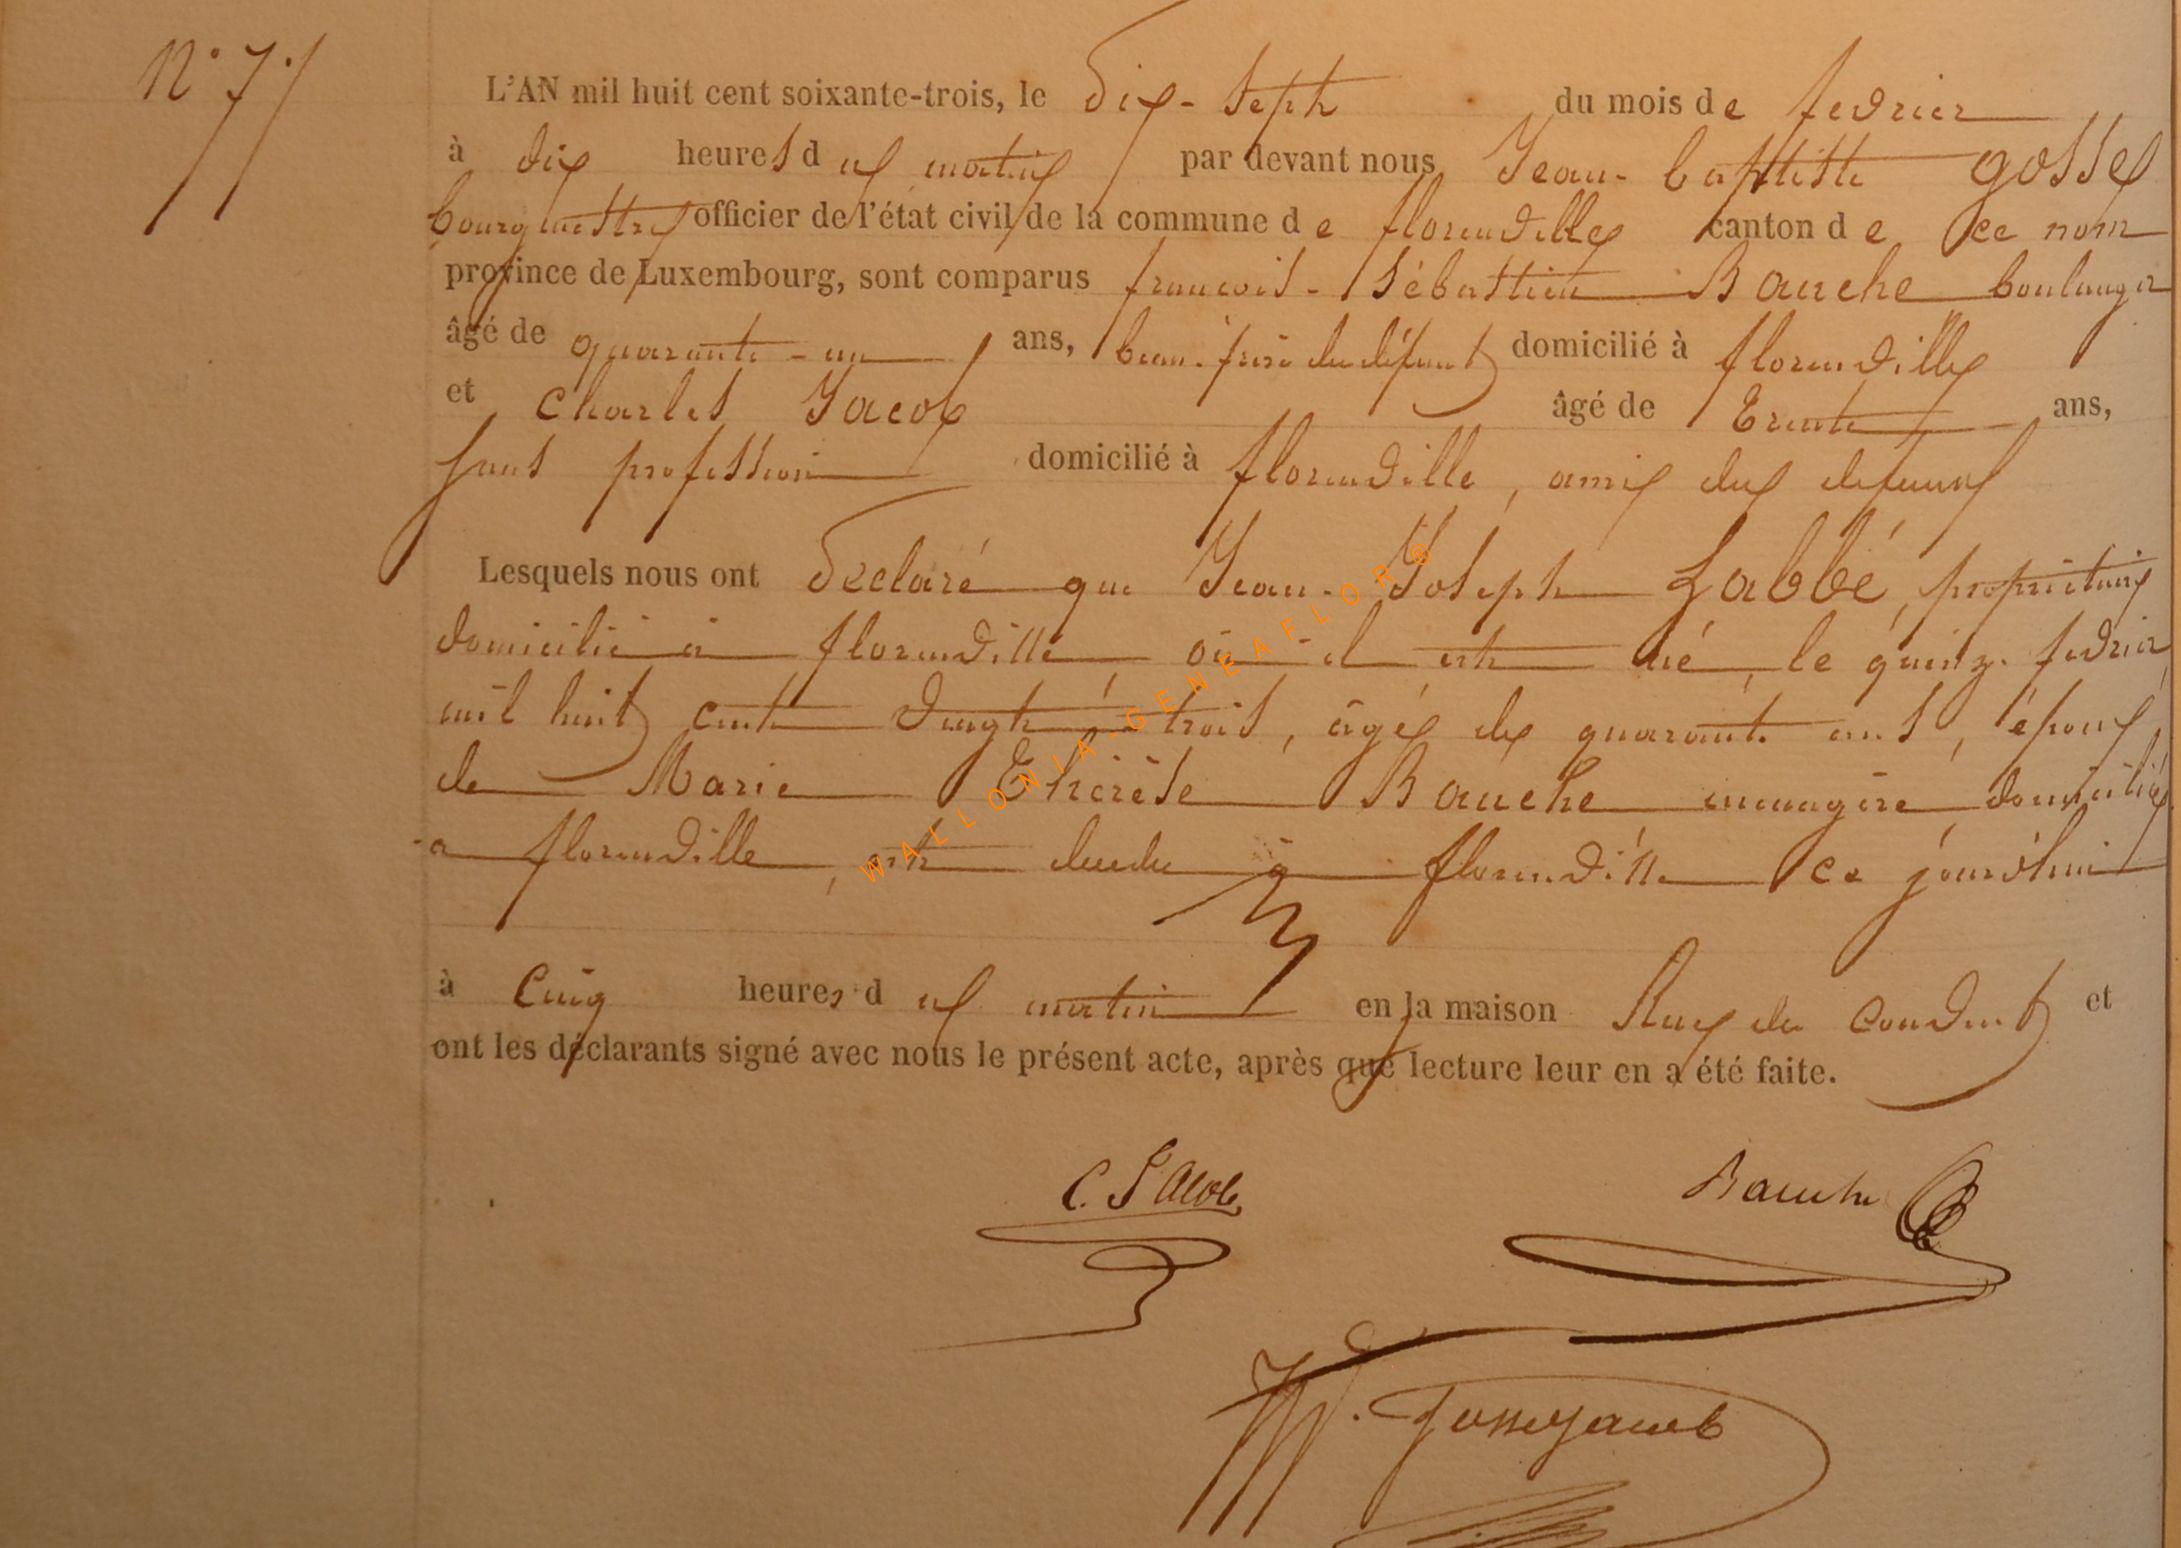 N° 7.
L'AN mil huit cent soixante-trois, le Dix-Sept du mois de fevrier
à dix heures du matin par devant nous Jean-baptiste Gosse
bourgmestre officier de l'état civil de la commune de florenville canton de ce nom
province de Luxembourg, sont comparus francois-Sébastien Bauche boulanger
âgé de quarante-un ans, beau-frère du défunt domicilié à florenville
et Charles Jacob âgé de Trente ans,
sans profession domicilié à florenville, ami du defunt
Lesquels nous ont Declaré que Jean-Joseph Labbé, propriétaire
domicilié à florenville où il est né, le quinze fevrier
mil huit cent vingt trois, âgé de quarante ans, époux
de Marie Thérèse Bauche menagère domiciliée
a florenville, est decedé à florenville ce jourd'hui
à Cinq heures du matin en la maison Rue du Couvent et
ont les déclarants signé avec nous le présent acte, après que lecture leur en a été faite.
C. Jacob Bauche
Gosse Jacob
WALLONIA-GENEAFLOR®